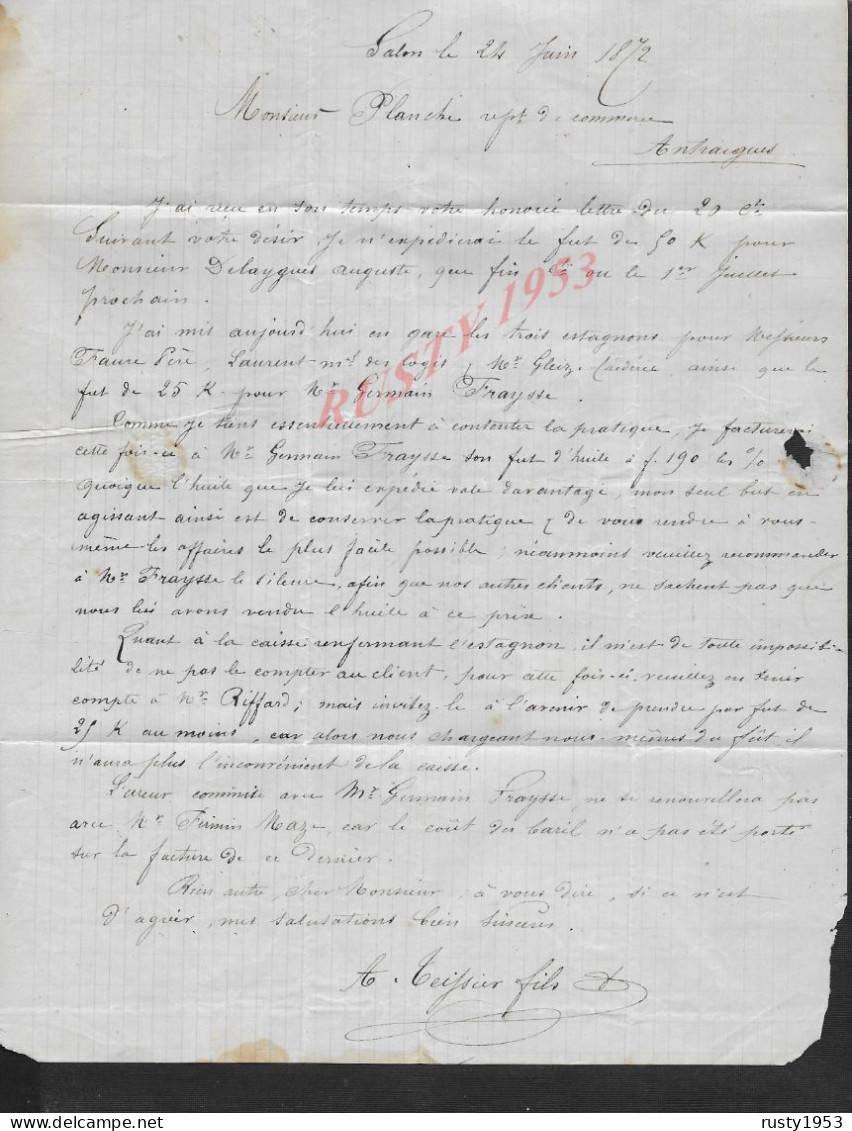 Salon le 24 Juin 1872
Monsieur Planche rept de commerce
Antraigues
J'ai reçu en son temps votre honoré lettre du 20 Ct.
Suivant votre désir, Je n'expédierai le fut de 50 K pour
Monsieur Delaygues auguste, que fin Ct ou le 1er Juillet
prochain.
J'ai mis aujourd'hui en gare les trois estagnons pour Messieurs
Faure Père, Laurent md des logis, Mr Gleize, ainsi que le
fut de 25 K pour Mr Germain Fraysse.
Comme Je tiens essentiellement à contenter la pratique, Je facturerai
cette fois-ci à Mr Germain Fraysse son fut d'huile à f. 190 les %
quoique l'huile que Je lui expédie vale davantage, mon seul but en
agissant ainsi est de conserver la pratique & de vous rendre à vous-
même les affaires le plus facile possible; néanmoins veuillez recommander
à Mr Fraysse le silence, afin que nos autres clients, ne sachent pas que
nous lui avons vendu l'huile à ce prix.
Quant à la caisse renfermant l'estagnon, il m'est de toute impossibi-
lité de ne pas le compter au client, pour cette fois-ci, veuillez en tenir
compte à Mr Riffard; mais invitez-le à l'avenir de prendre par fut de
25 K au moins, car alors nous chargeant nous-mêmes du fût, il
n'aura plus l'inconvénient de la caisse.
L'ereur commise avec Mr Germain Fraysse ne se renouvellera pas
avec Mr Firmin Maze, car le coût du baril n'a pas été porté
sur la facture de ce dernier.
Rien autre, cher Monsieur, à vous dire, si ce n'est
d'agréer, mes salutations bien sincères.
A. Teissier fils
RUSTY 1953
rusty1953